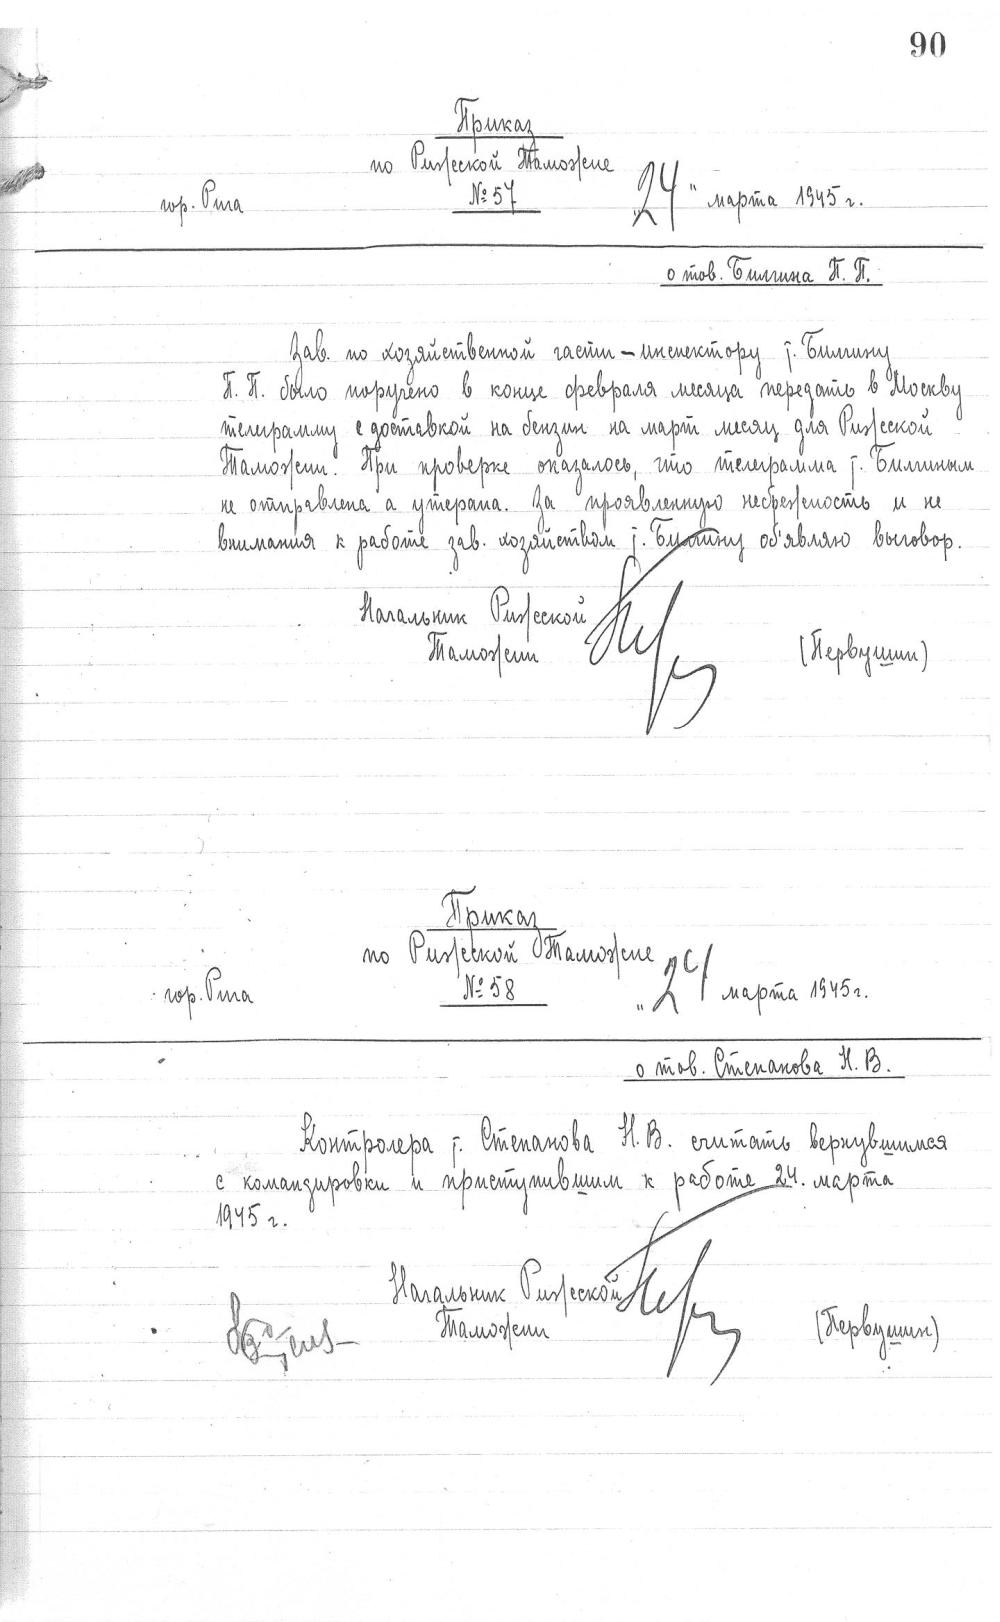 90
Приказ
по Рижской Таможне
гор. Рига № 57 "24" марта 1945 г.
о тов. Билгина П. П.
Зав. по хозяйственной части – инспектору т. Билгину
П. П. было поручено в конце февраля месяца передать в Москву
телеграмму с доставкой на бензин на март месяц для Рижской
Таможни. При проверке оказалось, что телеграмма т. Билгиным
не отправлена а утеряна. За проявленную небрежность и не
внимания к работе зав. хозяйством т. Билгину об'являю выговор.
Начальник Рижской
Таможни (Первушин)
Приказ
по Рижской Таможне
гор. Рига № 58 "24 марта 1945 г.
о тов. Степанова Н. В.
Контролера т. Степанова Н. В. считать вернувшимся
с командировки и приступившим к работе 24. марта
1945 г.
Начальник Рижской
Таможни (Первушин)